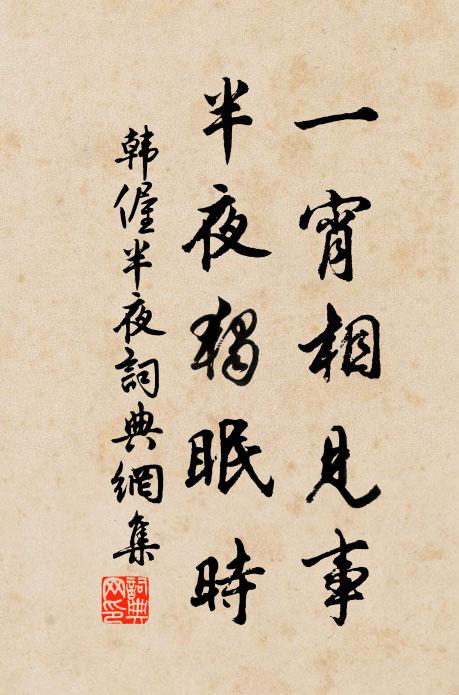 一宵相見事
半夜獨眠時
韩偓半夜詞典網集
詞典網印